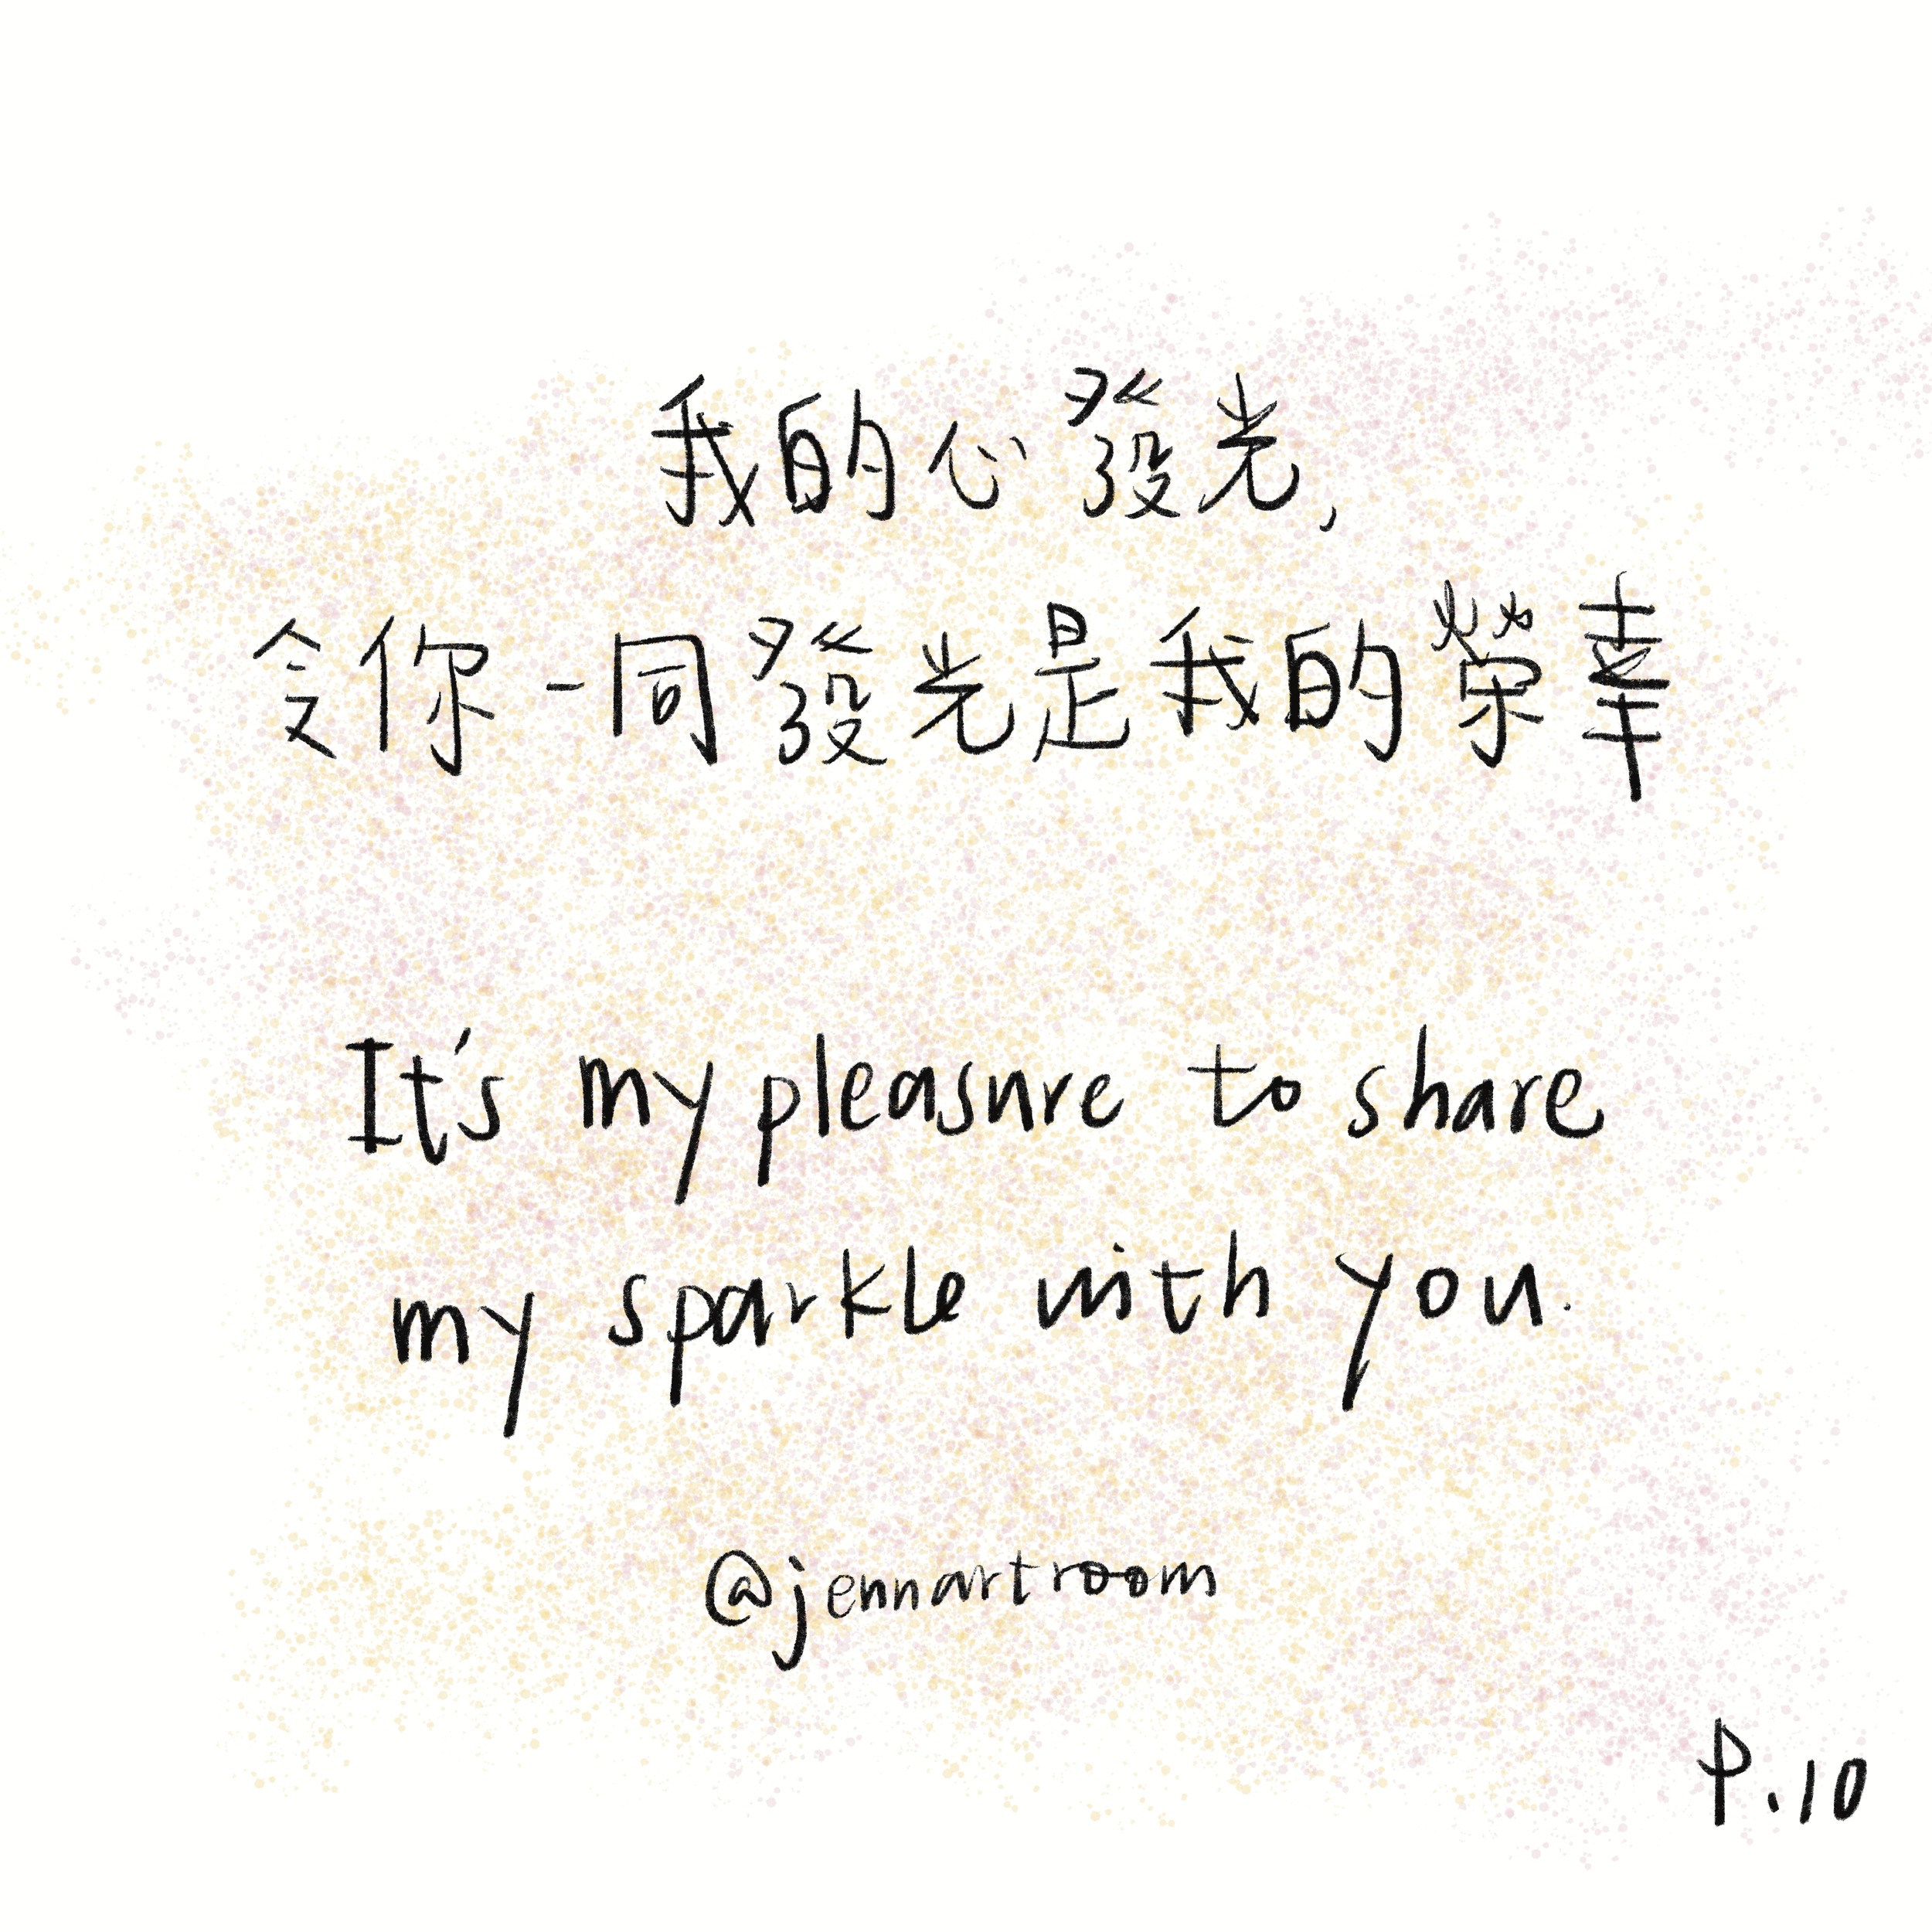 我的心發光,
令你一同發光是我的榮幸
It's my pleasure to share
my sparkle with you.
@jennartroom
P.10